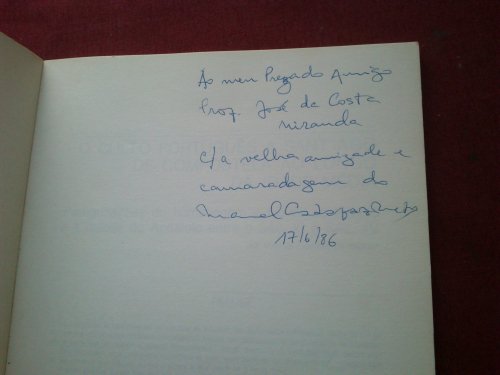 Ao meu Prezado Amigo
Prof. José da Costa
Miranda
c/a velha amizade e
camaradagem do
Manuel
17/6/86